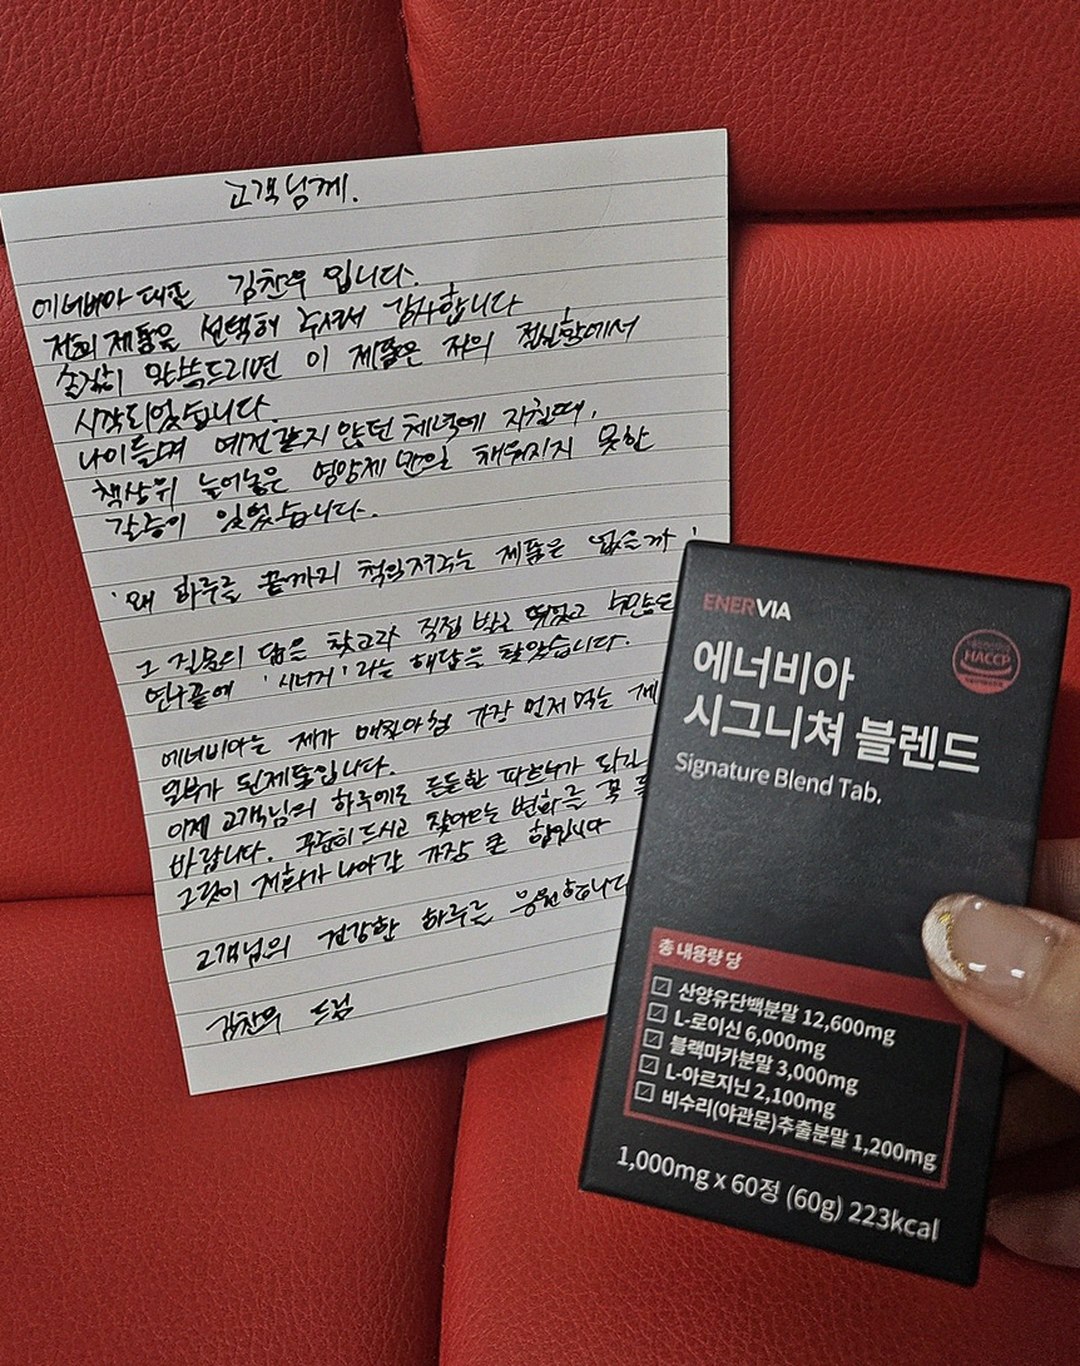 고객님께.
에너비아 대표 김찬우 입니다.
저희 제품을 선택해 주셔서 감사합니다
솔직히 말씀드리면 이 제품은 저의 절실함에서
시작되었습니다.
나이들며 예전같지 않던 체력에 지칠때,
책상위 늘어놓은 영양제 만으로 채워지지 못한
갈증이 있었습니다.
'왜 하루를 끝까지 책임져주는 제품은 없을까'
그 질문의 답을 찾고자 직접 발로 뛰었고 수많은
연구끝에 '시너지'라는 해답을 찾았습니다.
에너비아는 제가 매일아침 가장 먼저 먹는 제
일부가 된제품입니다.
이제 고객님의 하루에도 든든한 파트너가 되기
바랍니다. 꾸준히 드시고 찾아오는 변화를 꼭
그것이 저희가 나아갈 가장 큰 힘입니다
고객님의 건강한 하루를 응원합니다
김찬우 드림
ENERVIA
에너비아
시그니쳐 블렌드
Signature Blend Tab.
HACCP
총 내용량 당
산양유단백분말 12,600mg
L-로이신 6,000mg
블랙마카분말 3,000mg
L-아르지닌 2,100mg
비수리(야관문)추출분말 1,200mg
1,000mg x 60정 (60g) 223kcal